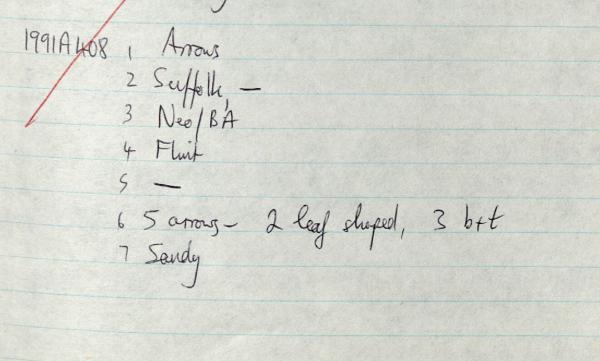 1991A408 1 Arrows
2 Suffolk, —
3 Neo/BA
4 Flint
5 —
6 5 arrows - 2 leaf shaped, 3 b+t
7 Sandy